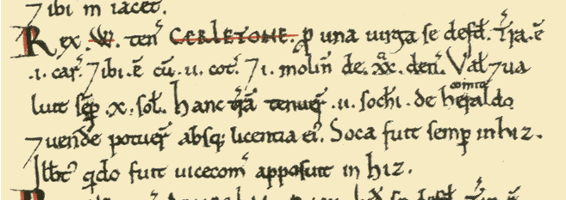 ⁊ ibi m̄ iacet.
Rex .W. ten̄ CERLETONE. ꝑ una uirga se defd̄. T̄ra .ē
.i. car̄. ⁊ ibi .ē cū .ii. cot̄. ⁊ .i. molin̄ de .xx. den̄. Val̄ ⁊ ua
luit sēp .x. sol̄. hanc t̄rā tenuer̄ .ii. sochi. de heraldo comite
⁊ uendē potuer̄ absq; licentia ei᷒. Soca fuit semp̄ in hiz.
Ilbt̄ qdo fuit uicecom̄ apposuit in hiz.